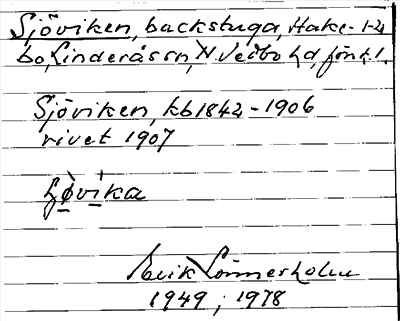 Sjöviken, backstuga, Hake- 1-2,
bo, Linderås sn, N Vedbo hd, Jönk l.
Sjöviken, kb 1842 - 1906
rivet 1907
Erik Lönnerholm
1949, 1978